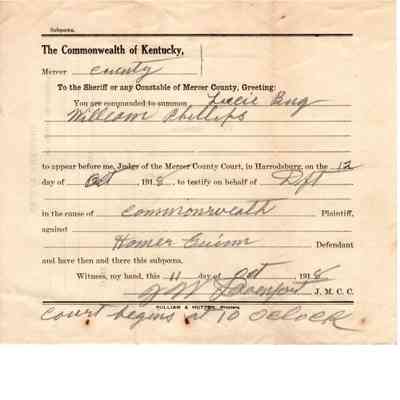 Subpoena.
The Commonwealth of Kentucky,
Mercer County
To the Sheriff or any Constable of Mercer County, Greeting:
You are commanded to summon Lucie
William Phillips
to appear before me, Judge of the Mercer County Court, in Harrodsburg, on the 12
day of Oct 1918, to testify on behalf of Dft
in the cause of Commonwealth Plaintiff,
against
Homer Defendant
and have then and there this subpoena.
Witness, my hand, this 11 day of Oct 1918
Davenport J. M. C. C.
Printers
Court begins at 10 OClock